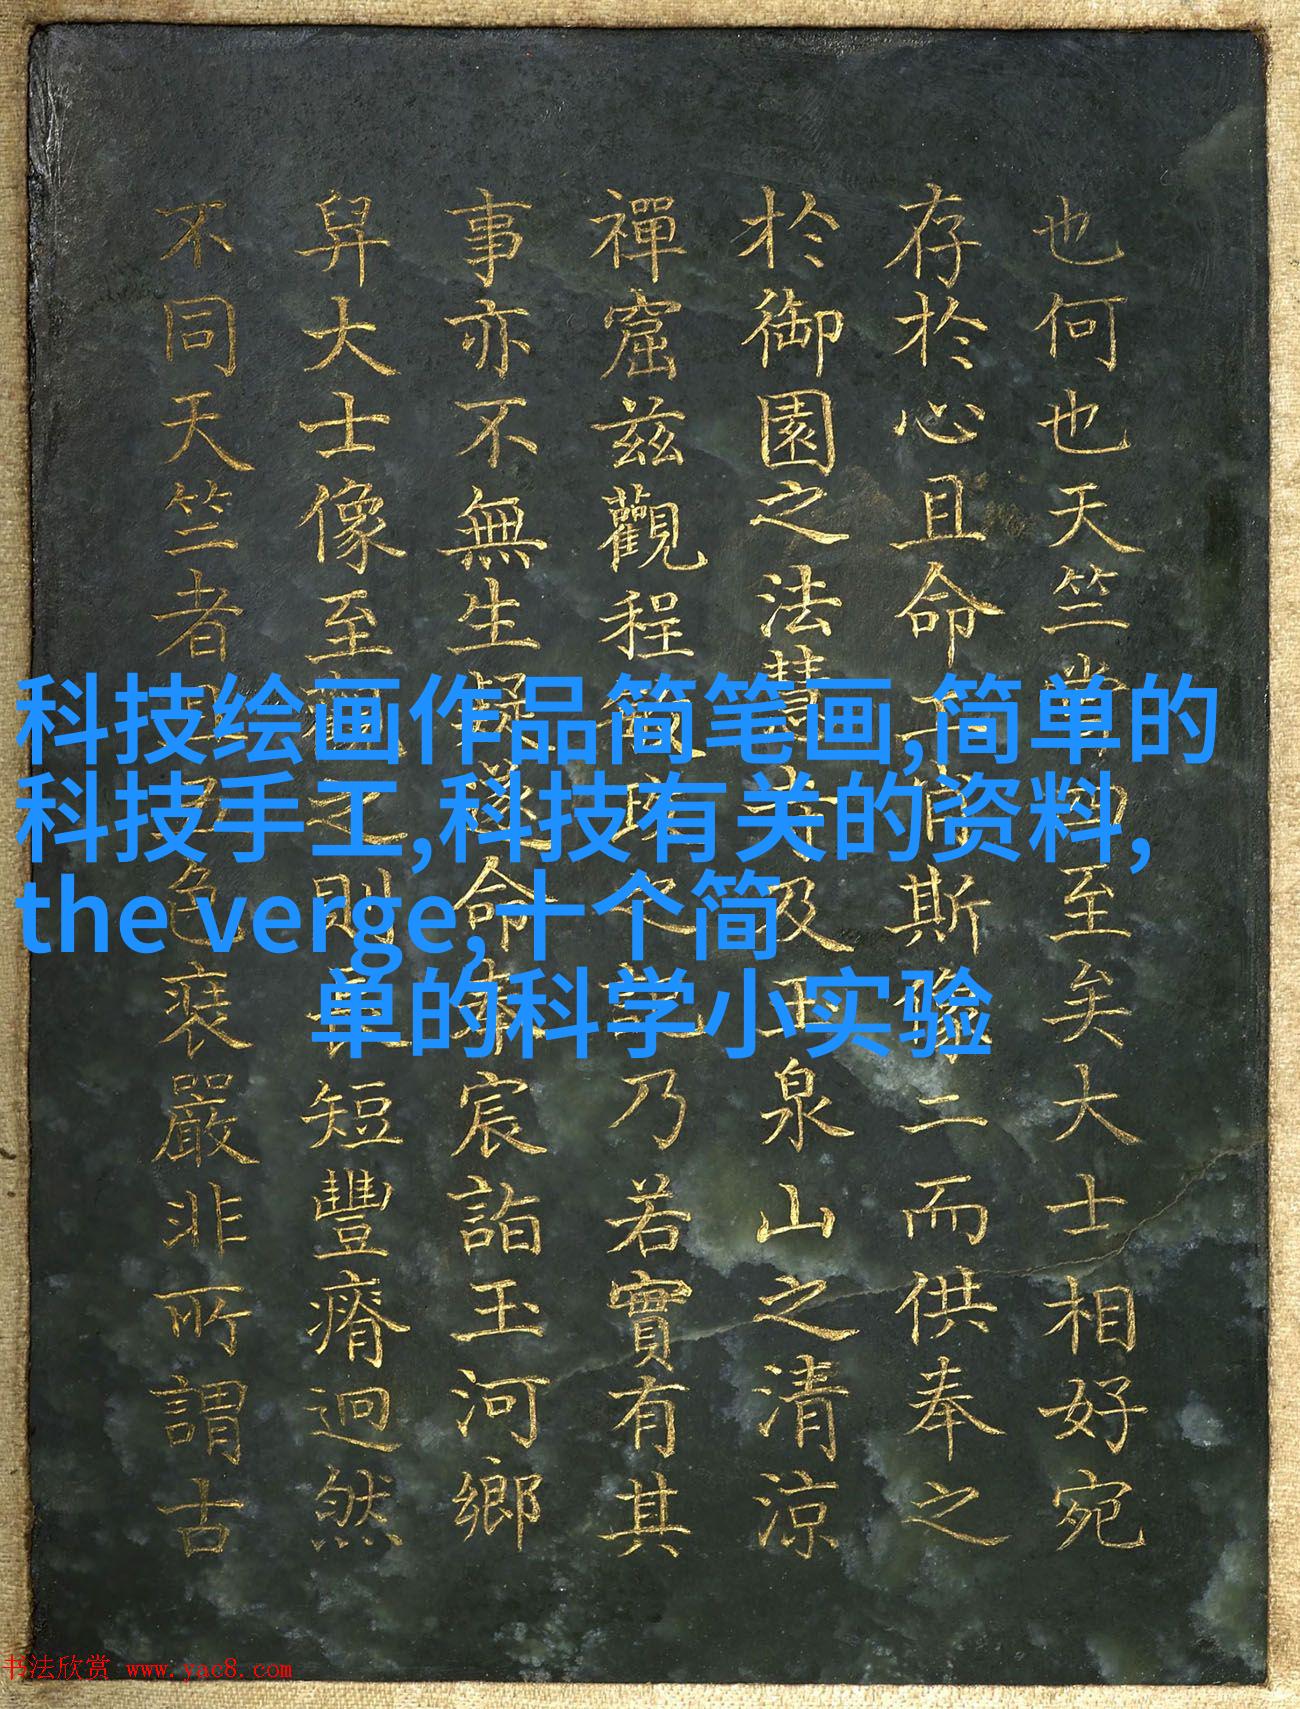 也何也天竺至矣大士相好宛
存於心且命工肖斯像二而供奉之
於御園之法慧寺及玉泉山之清涼
禪窟茲觀程敏政之記乃若實有其
事亦不無生疑遂命來宸詣玉河鄉
舁大士像至觀之則長短豐瘠迥然
不同天竺者且五色裝嚴非所謂古
科技绘画作品简笔画,简单的
科技手工,科技有关的资料,
the verge,十个简
单的科学小实验
书法欣赏 www.yac8.com